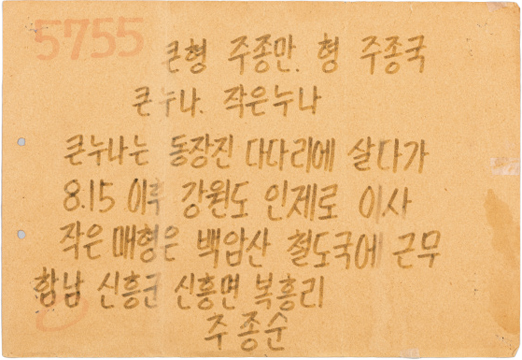 5755
큰형 주종만. 형 주종국
큰누나. 작은누나
큰누나는 동장진 다다리에 살다가
8.15 이후 강원도 인제로 이사
작은매형은 백암산 철도국에 근무
함남 신흥군 신흥면 복흥리
주종순